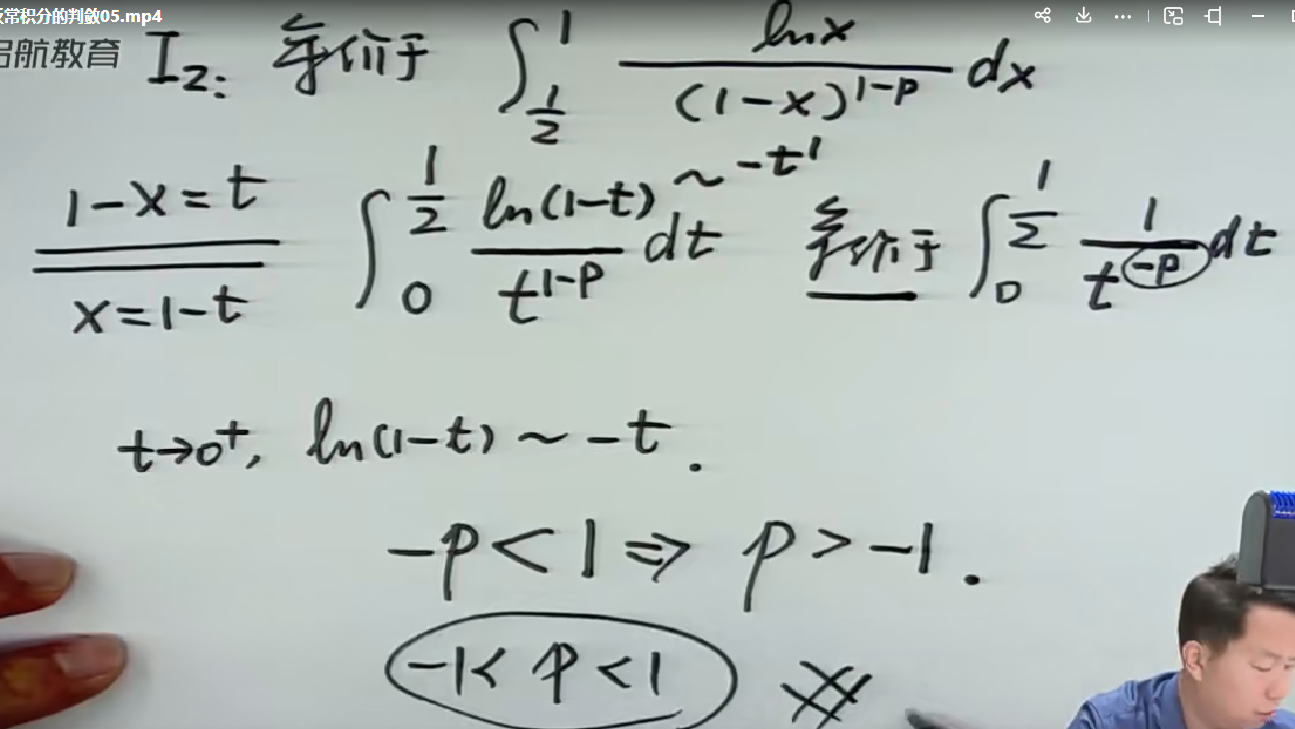 反常积分的判敛05.mp4
启航教育
I₂: 等价于 ∫_{1/2}^{1} lnx/(1-x)^{1-p} dx
1-x=t
x=1-t
∫_{0}^{1/2} ln(1-t)/t^{1-p} dt
~ -t¹
等价于 ∫_{0}^{1/2} 1/t^{-p} dt
t→0⁺, ln(1-t) ~ -t.
-p<1 ⇒ p>-1.
-1<p<1